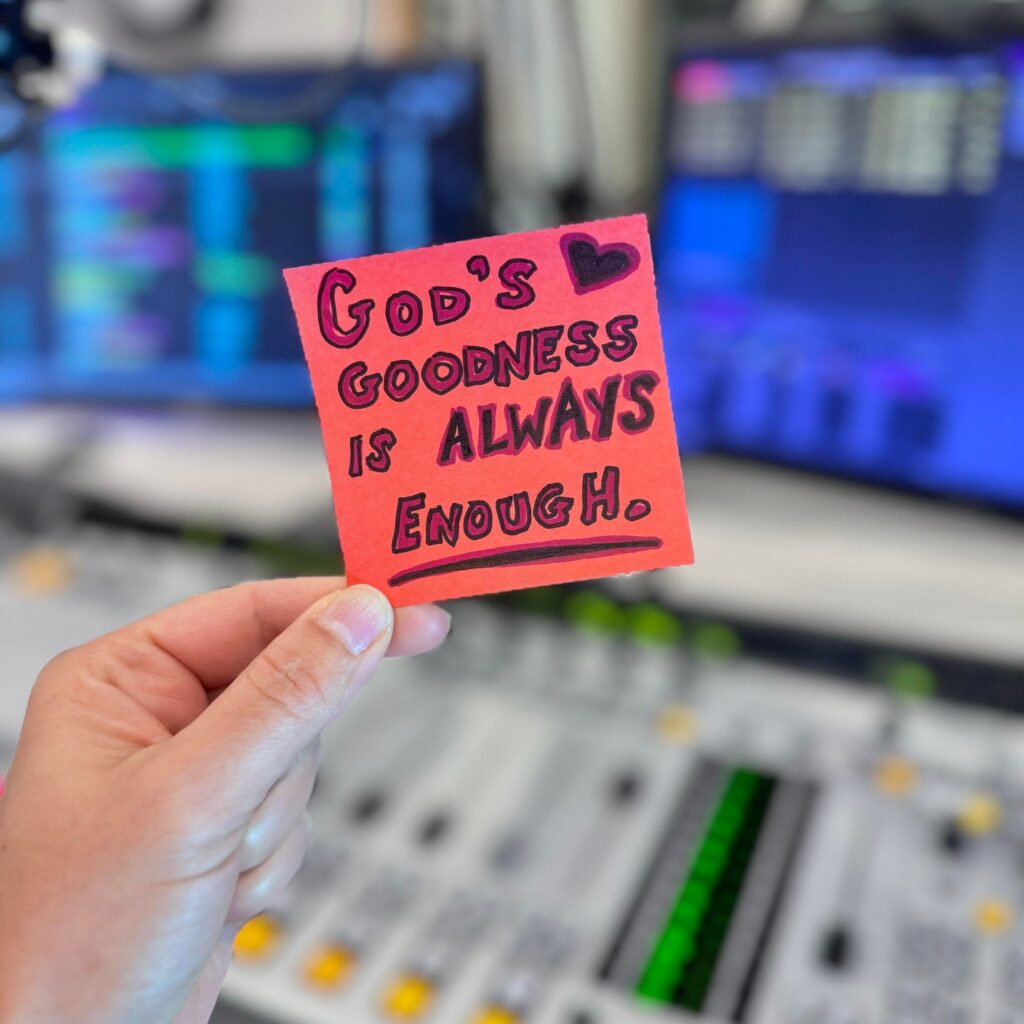 GOD'S
GOODNESS
IS ALWAYS
ENOUGH.